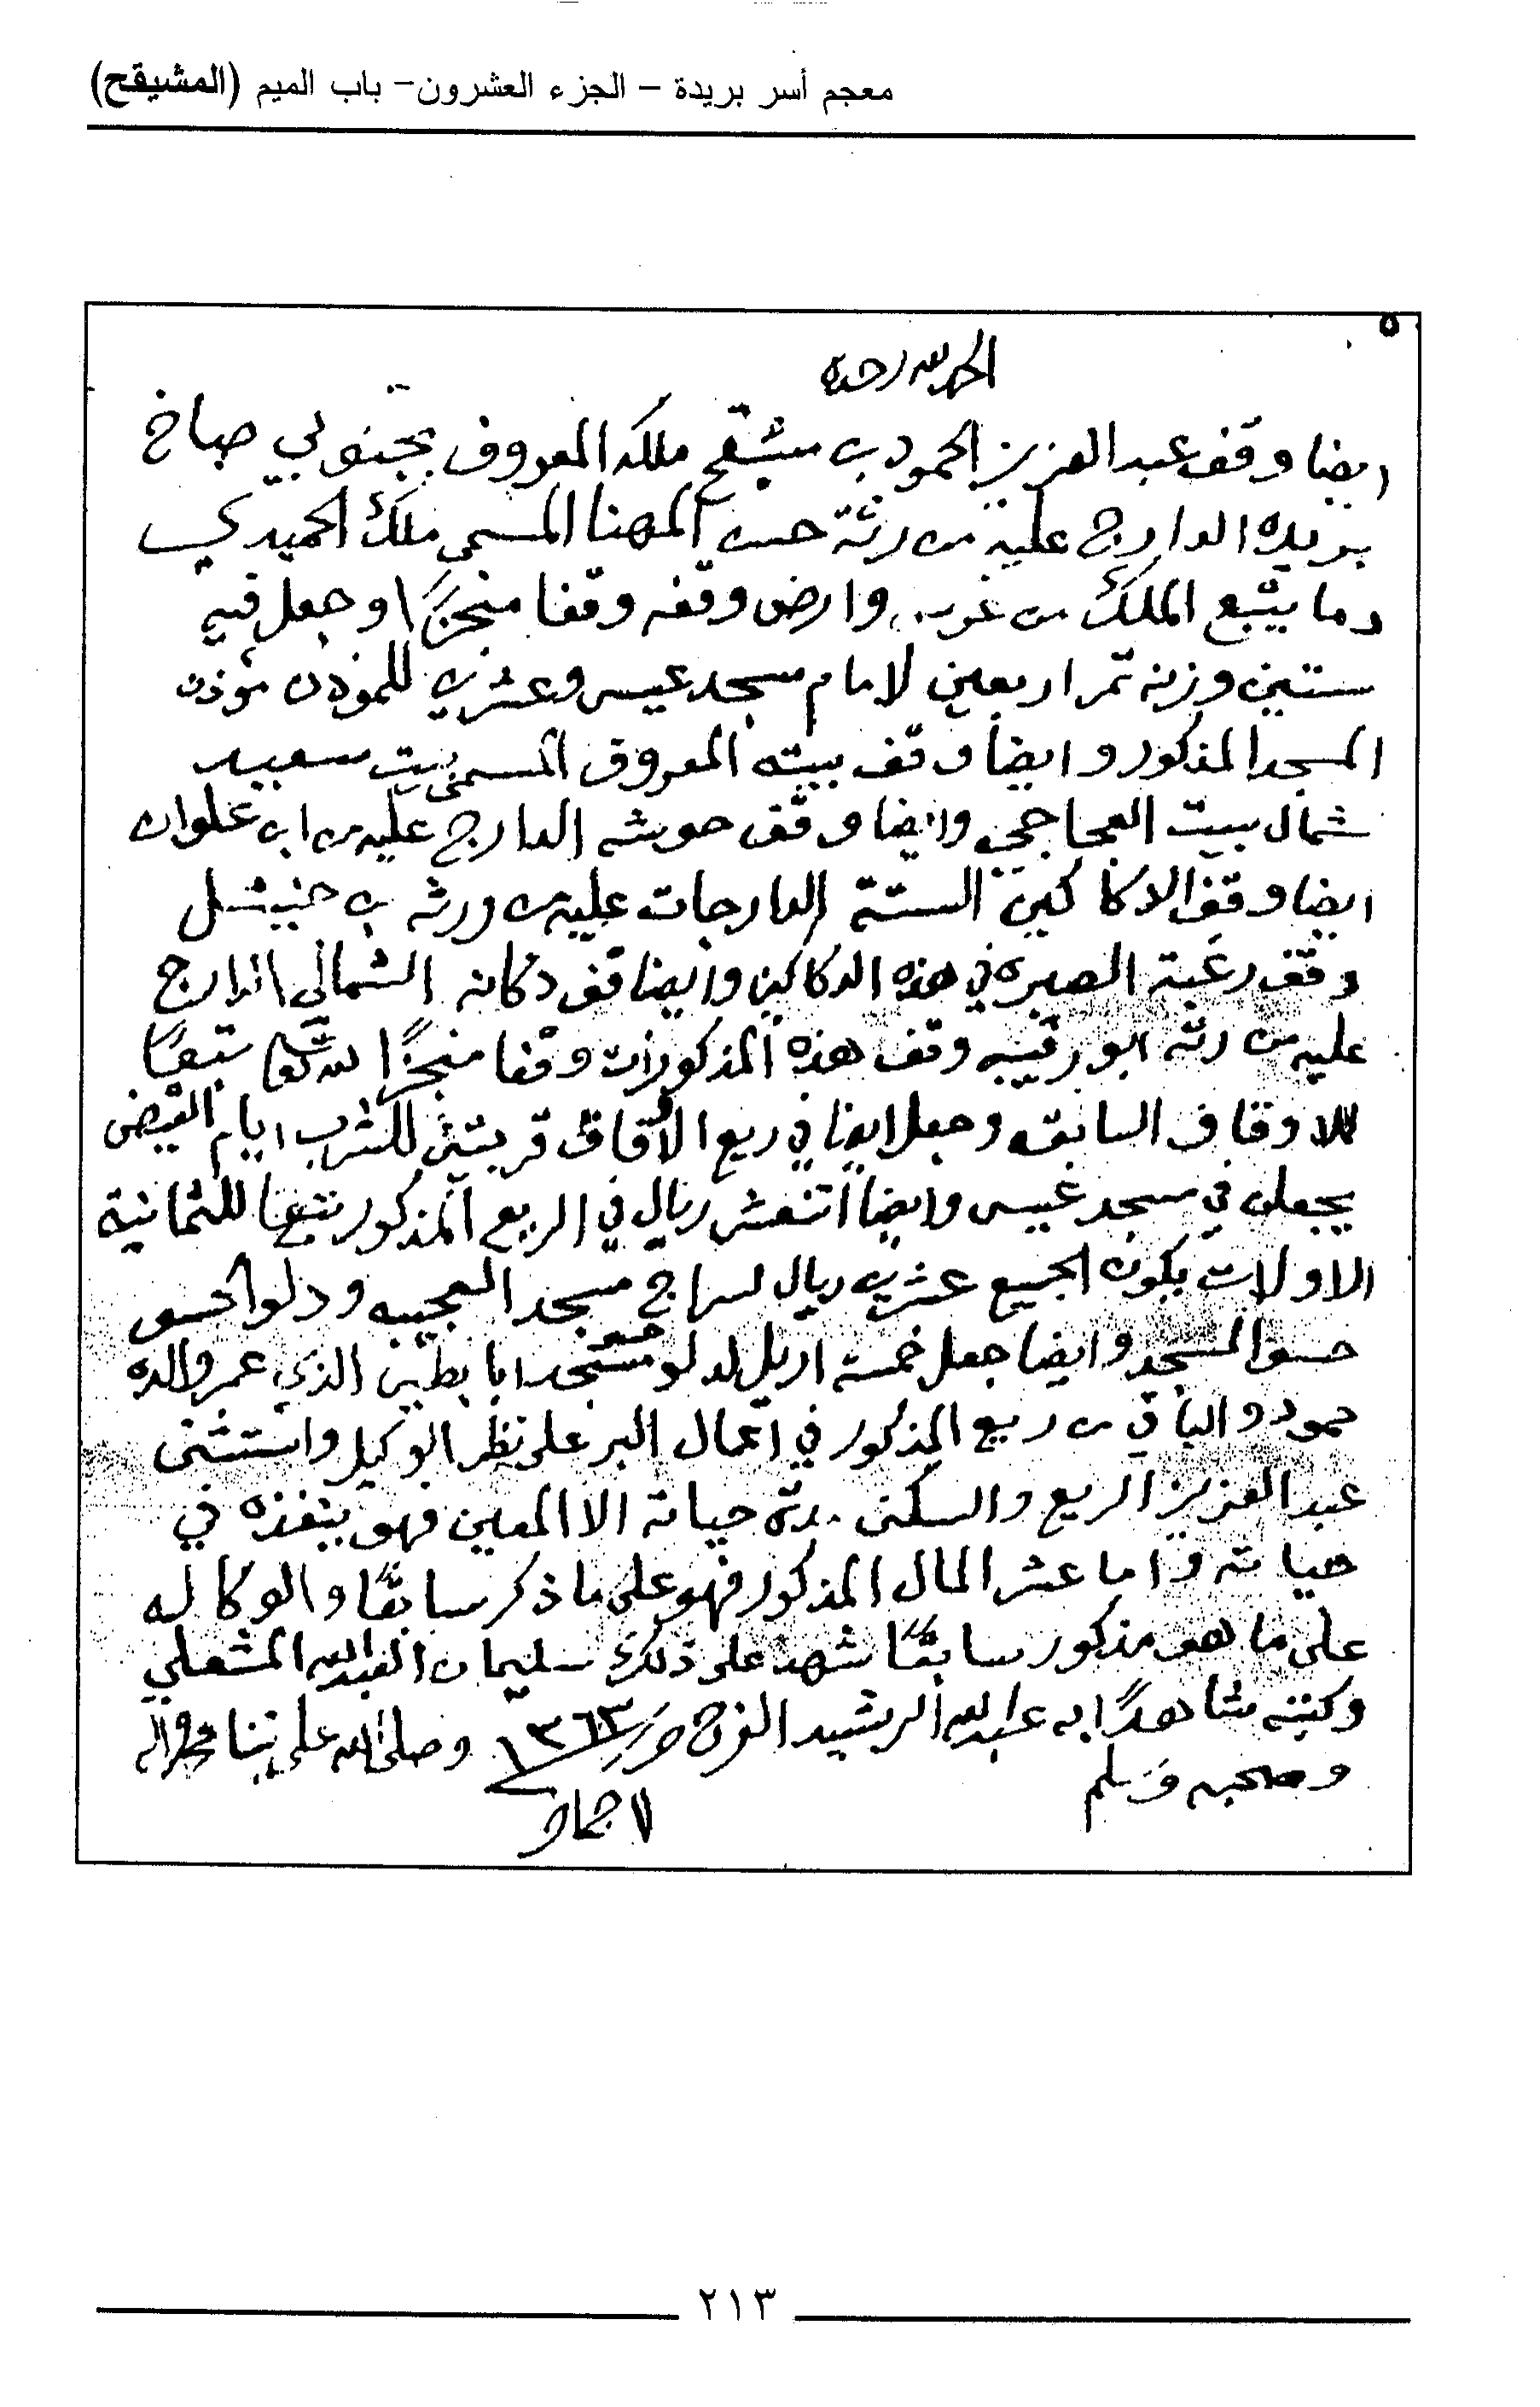 معجم أسر بريدة – الجزء العشرون– باب الميم (المشيقح)
٥
الحمد لله وحده
ايضا وقف عبد العزيز الحمود بن مشيقح ملكه المعروف بجنوبي صباخ
بريده الدارج عليه من رثة حسن المهنا المسمى ملك الحميدي
وما يتبع الملك من وارض وقفه وقفا منجزًا وجعل فيه
ستين وزنه تمر اربعين لامام مسجد عيسى وعشرين للموذن موذن
المسجد المذكور وايضا وقف بيته المعروف المسمى بيت سعيد
شمال بيت العجاجي وايضا وقف حوشه الدارج عليه من ابن علوان
ايضا وقف الدكاكين الستة الدارجات عليه من ورثه بن خنيشل
وقف رغبة الصبره في هذه الدكاكين وايضا قف دكانه الشمالي الدارج
عليه من رثة ابو رقيبه وقف هذه المذكورات وقفا منجزًا لله تعا تبعًا
للاوقاف السابقه وجعل ايضا في ريع الاوقاف قربتين للشرب ايام القيض
يجعلن في مسجد عيسى وايضا اثنعشر ريال في الربع المذكور تتبع للثمانية
الاولات يكون الجميع عشرين ريال لسراج مسجد العجيبه ودلو الحسو
حسو المسجد وايضا جعل خمسة اريل لدلو حسو مسجد ابا بطين الذي عمر والده
حمود والباقي من ريع المذكور في اعمال البر على نظر الوكيل واستثنى
عبد العزيز الريع والسكنى مدة حياته الا المعين فهو ينفذه في
حياته واما عشر المال المذكور فهو على ما ذكر سابقًا والوكاله
على ما هو مذكور سابقًا شهد على ذلك سليمان العبدالله المشعلي
وكتبه شاهدًا به عبدالله الرشيد الفرج ١٣٦٣ وصلى الله على نبينا محمد واله
وصحبه وسلم
جماد
٢١٣